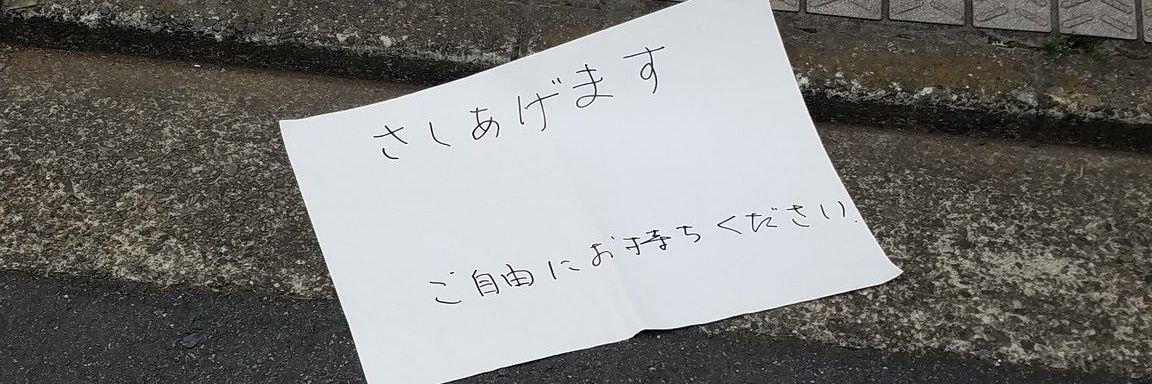 さしあげます
ご自由にお持ちください.